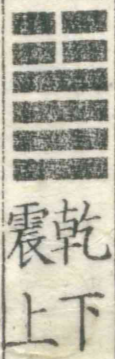 乾下
震上